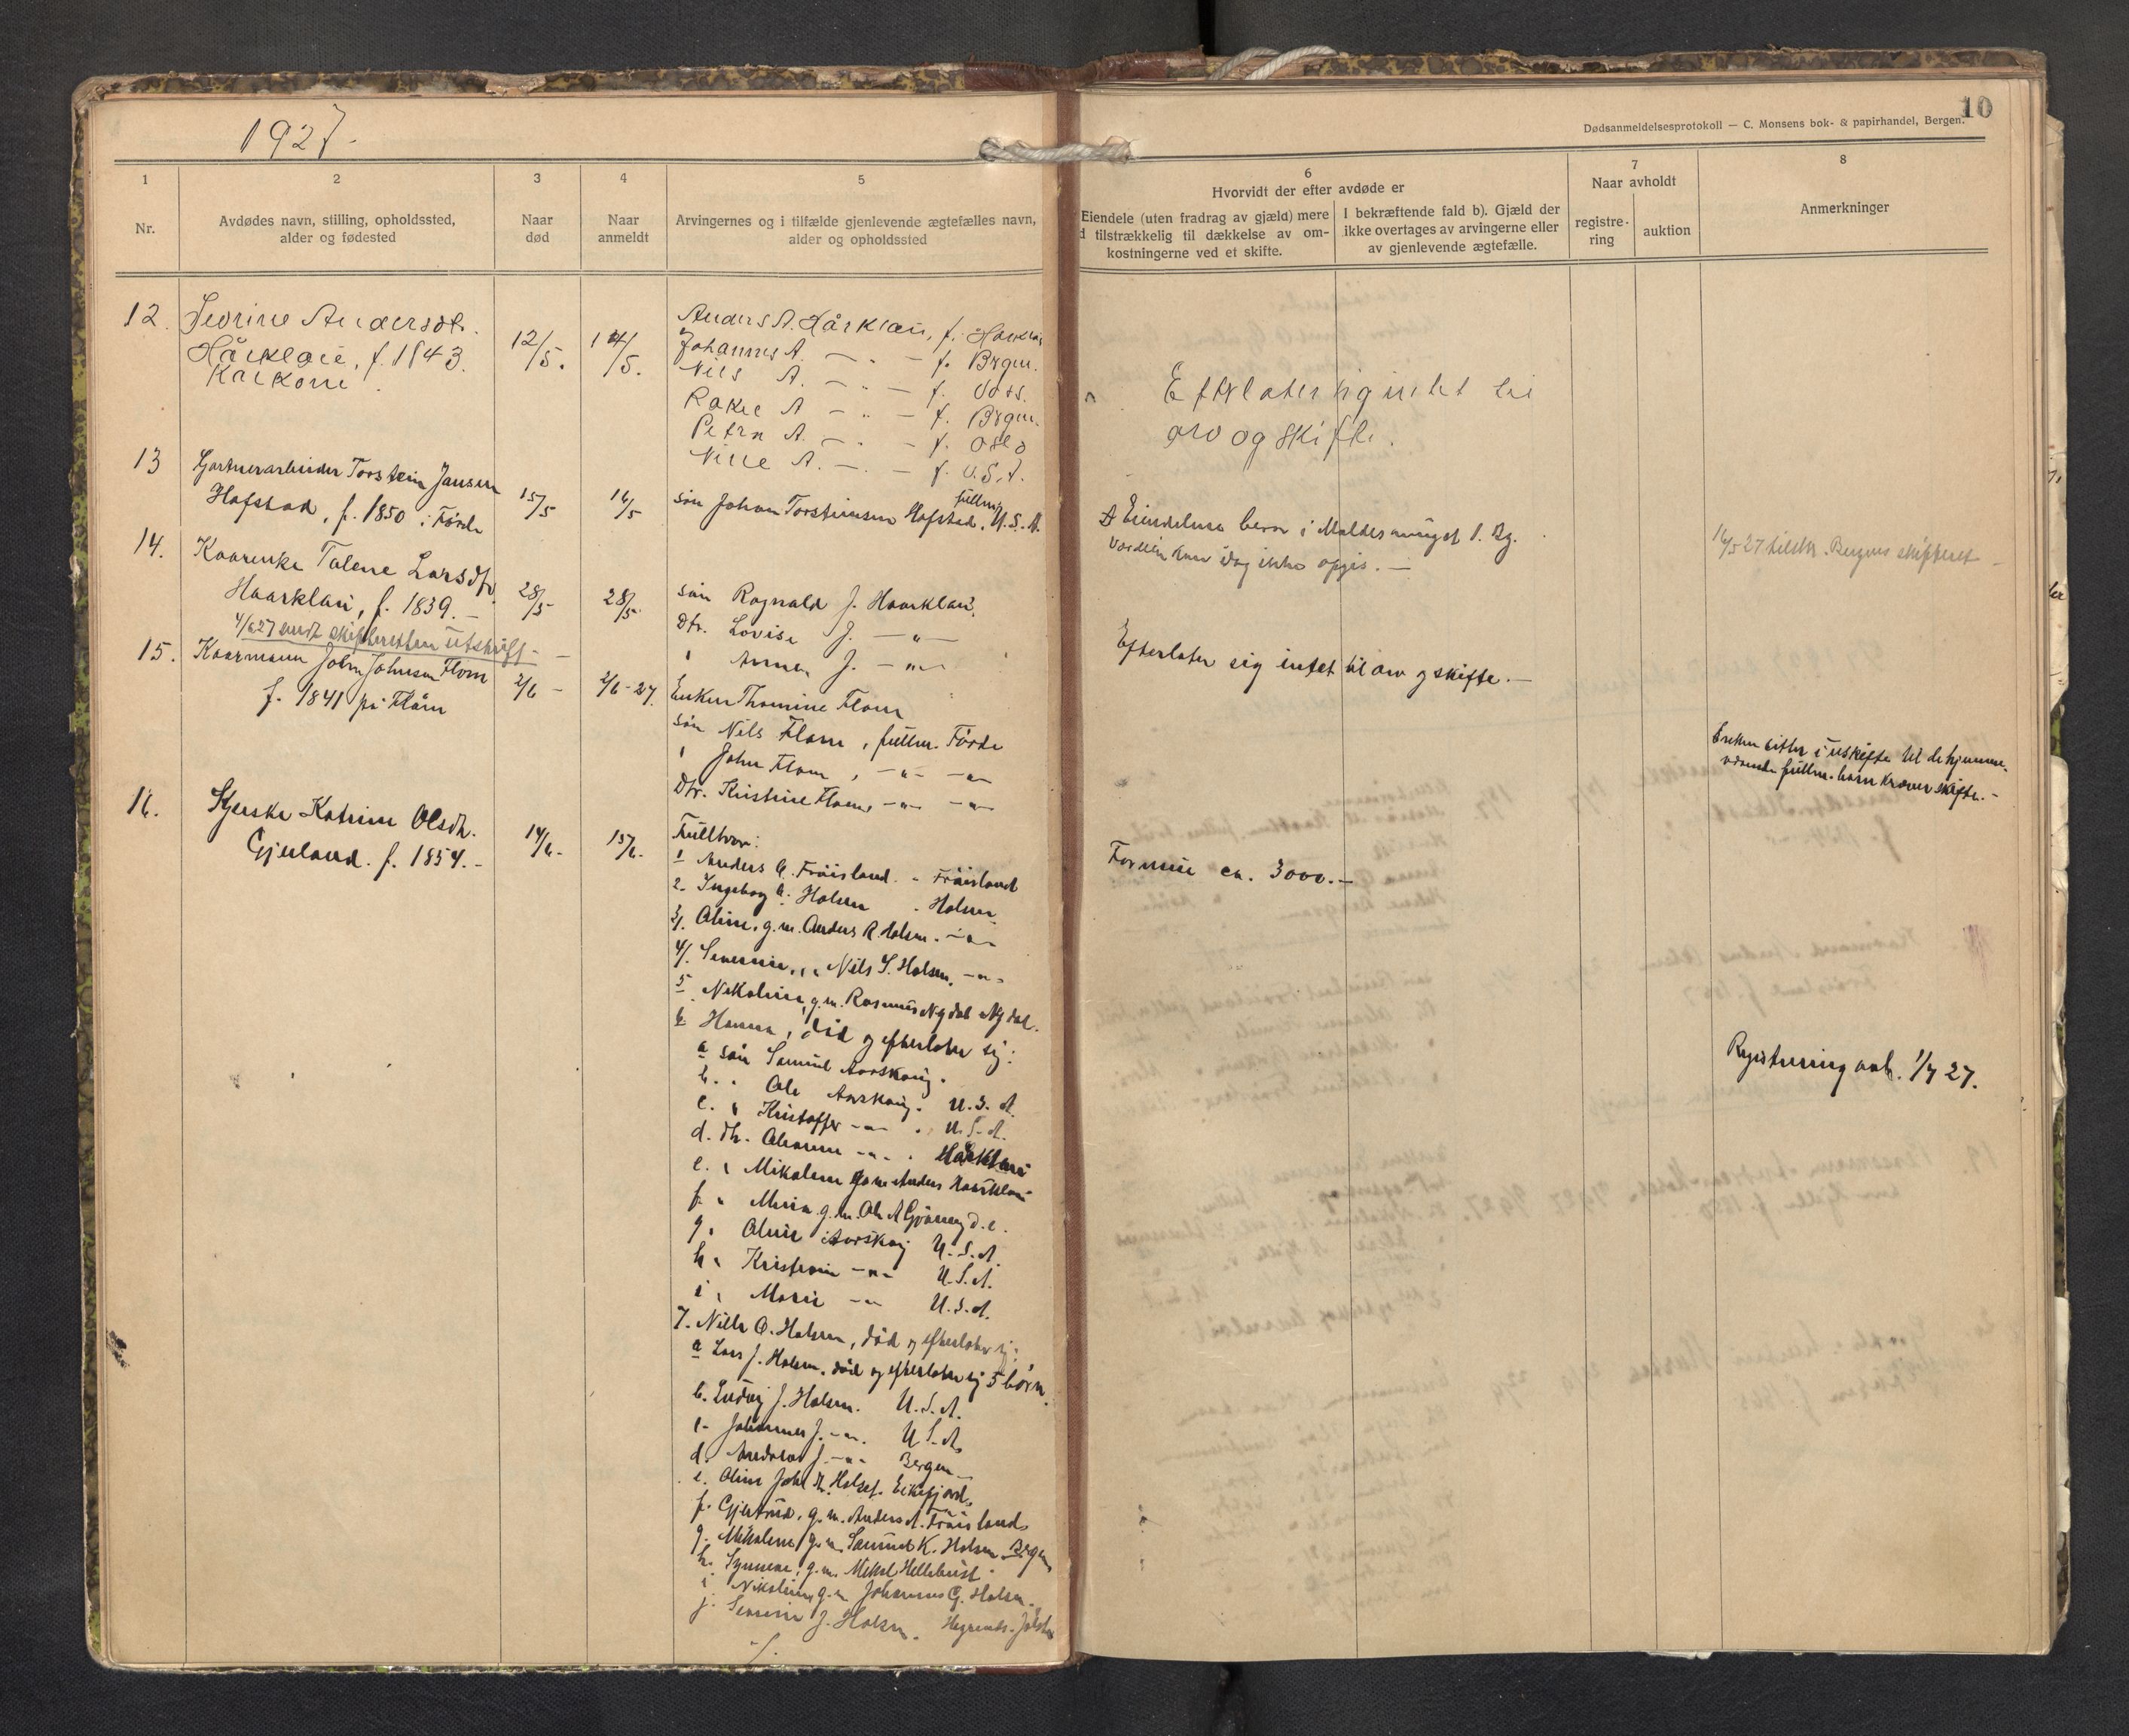 1927.
10
Dødsanmeldelsesprotokoll — C. Monsens bok- & papirhandel, Bergen.
1
2
3
4
5
6
7
8
Nr.
Avdødes navn, stilling, opholdssted,
alder og fødested
Naar
død
Naar
anmeldt
Arvingernes og i tilfælde gjenlevende ægtefælles navn,
alder og opholdssted
Hvorvidt der efter avdøde er
Eiendele (uten fradrag av gjæld) mere
d tilstrækkelig til dækkelse av om-
kostningerne ved et skifte.
I bekræftende fald b). Gjæld der
ikke overtages av arvingerne eller
av gjenlevende ægtefælle.
Naar avholdt
registre-
ring
auktion
Anmerkninger
12.
Sevrine Andersdtr.
Hårklau, f. 1843.
12/5.
14/5.
Anders A. Hårklau, f.
Johannes A. — " — f. Brgn.
Nils A. — " — f. Voss.
Rakel A — " — f. Brgn.
Petra A. — " — f. Oslo
A. — " — f. U.S.A.
Efterlater sig intet til
arv og skifte.
13
Torstein Jansen
Hafstad, f. 1850 i Førde
15/5
16/5
søn Johan Torsteinsen Hafstad, U.S.A.
fullmy.
i Bg.
idag ikke opgis. —
16/5 27 Bergens skifteret
14.
Kaarenke Talene Larsdtr.
Haarklau, f. 1839. —
4/6 27 sendt skifteretten utskrift —
28/5
28/5
søn Ragnald J. Haarklau.
Dtr. Lovise J. — " —
" Anna J. — " —
Efterlater sig intet til arv og skifte. —
15.
Kaarmann John Johnsen Flom
f. 1841 på Flåm
2/6 —
2/6 - 27.
Enken Thomine Flom
søn Nils Flom, fullm. Førde
" John Flom, — " — — " —
Dtr. Kristine Flom — " — — " —
Enken sitter i uskifte til de hjemme-
værende fullm. barn kræver skifte. —
16.
Katrine Olsdtr.
Gjerland. f. 1854. —
14/6. -
15/6. -
1 Anders O. Fråisland. - Fråisland
2. Ingeborg O. Holsen . Holsen.
3/. Oline, g.m. Anders R. Holsen. — " —
4/. " Nils S. Holsen, — " —
5 Nikoline, g.m. Rasmus Nydal Nydal.
6 Hanna, død og efterlater sig:
a søn Samuel Aarskaug.
b. " Ole Aarskaug. U.S.A.
c. " Kristoffer — " — . U.S.A.
d. Dtr. — " — . Hårklau
e. " Mikaline g.m. Anders Haarklau
f. " g.m. Ole A
g. " Aarskaug U.S.A.
h " — " — U.S.A.
i " Marie — " — U.S.A.
7. O. Holsen, død og efterlater sig:
a Lars J. Holsen, død og efterlater sig 5 børn.
b. Ludvig J. Holsen. U.S.A.
c. Johannes J. — " — U.S.A.
d. J. — " — Bergen —
e. Oline Eikefjord.
f. Gjertrud, g.m. Anders A. Fråisland
g. Mikaline, g.m. Samuel K. Holsen Bergen
h. Synneve, g.m. Mikal Hellebust.
i Nikoline, g.m. Johannes G. Holsen.
j. J. Holsen. Jølster
Formue ca. 3000. —
Registrering avh. 1/7 27.